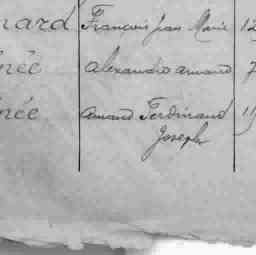 nard François Jean Marie 12
née alexandre armand 7
née armand Ferdinand 11
Joseph